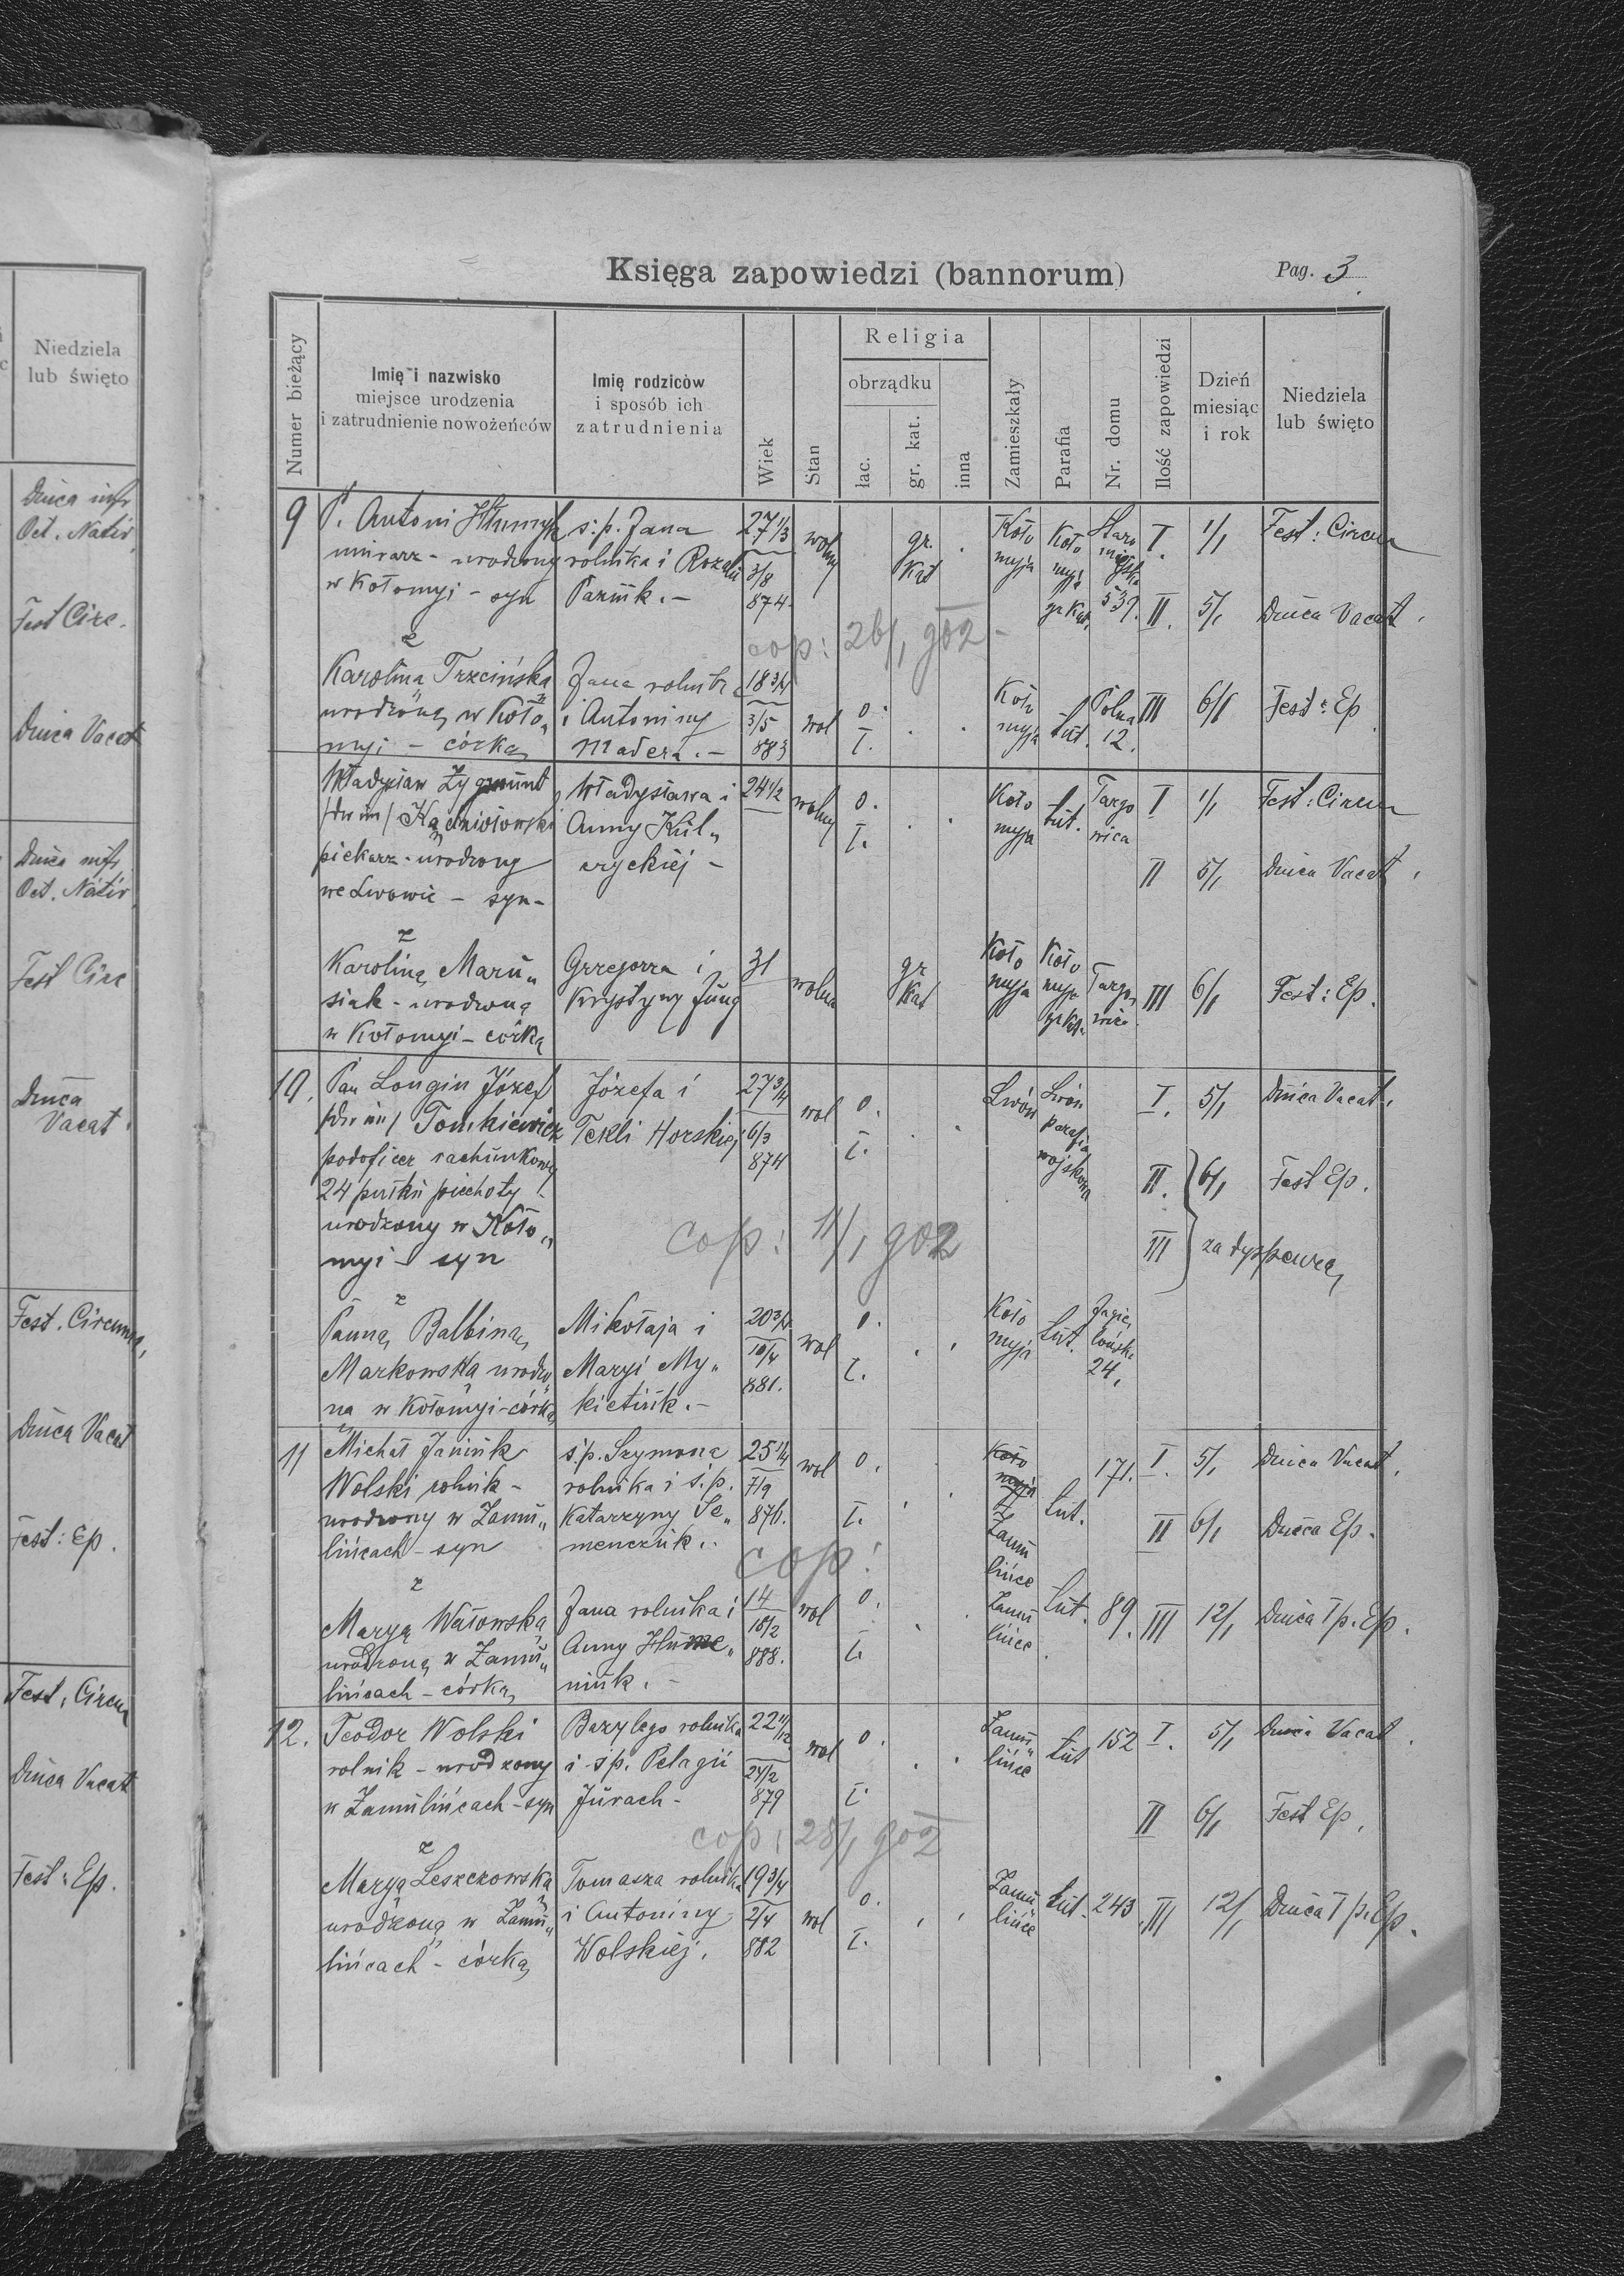 Niedziela
lub święto
Dnica inf
Oct. Nativ.
Fest Circ.
Dnica Vacat
Dnica inf
Oct. Nativ.
Fest Circ
Dnica
Vacat
Fest. Circum,
Dnica Vacat
Fest: Ep.
Fest. Circu
Dnica Vacat
Fest: Ep.
Księga zapowiedzi (bannorum)
Pag. 3.
Numer bieżący
Imię i nazwisko
miejsce urodzenia
i zatrudnienie nowożeńców
Imię rodziców
i sposób ich
zatrudnienia
Wiek
Stan
Religia
obrządku
łac.
gr. kat.
inna
Zamieszkały
Parafia
Nr. domu
Ilość zapowiedzi
Dzień
miesiąc
i rok
Niedziela
lub święto
9 P. Antoni s.p. Jana 27 1/3 wolny gr. Koło Koło Staro I. 1/1 Fest: Circum
murarz - urodzony rolnika i Rozalii 3/8 Kat myja myja miejska
w Kołomyi - syn Paziuk. - 874 gr kat. 539. II. 5/1 Dnica Vacat.
cop: 26/1 902 -
z
Karolina Trzcińska Jana rolnik 18 3/4
urodzoną w Koło„ i Antoniny 3/5 wol o. Koło łat. Polna III 6/1 Fest: Ep
myi - córką Madera. - 883 ł. myja 12.
Władysław Zygmunt Władysława i 24 1/2 wolny o. Koło łat. Targo I 1/1 Fest: Circum
/dw im/ Anny Kul„ ł. myja wica
piekarz - urodzony czyckiej - II 5/1 Dnica Vacat,
we Lwowie - syn -
z
Karoliną Maru„ Grzegorza i 31 wolna gr Koło Koło Targo III 6/1 Fest: Ep.
siak - urodzoną Krystyny Jung Kat myja myja wica
w Kołomyi - córką gr kat.
10. Pan Longin Józef Józefa i 27 3/4 wol o. Lwów Lwów I. 5/1 Dnica Vacat,
/dw im/ Tomkiewicz Tekli Horskiej 6/3 ł. parafia
podoficer rachunkowy 874 wojskowa
24 pułku piechoty II. 6/1 Fest Ep.
urodzony w Koło„ cop: 11/1 902
myi - syn III za dyspenzą
z
Panną Balbiną Mikołaja i 20 3/4 wol o. Koło łat. Jagie
Markowską urodzo„ Maryi My„ 10/4 ł. myja lońska
na w Kołomyi - córką kietiuk. - 881. 24,
11 Michał Janiuk s.p. Szymona 25 1/4 wol o. Koło 171. I. 5/1 Dnica Vacat.
Wolski rolnik - rolnika i s.p. 7/9 myja łat.
urodzony w Zamu„ Katarzyny Se„ 876. ł. Zamu II 6/1 Dnica Ep.
lińcach - syn menczuk. lińce
cop:
z
Maryą Watowską Jana rolnika i 14 wol o. Zamu łat. 89. III 12/1 Dnica I p. Ep.
urodzoną w Zamu„ Anny 18/2 ł. lińce
lińcach - córką niuk. - 888.
12. Teodor Wolski Bazylego rolnika 22 11/12 wol o. Zamu łat 152 I. 5/1 Dnica Vacat.
rolnik - urodzony i s.p. Pelagii 24/2 lińce
w Zamulińcach - syn Jurach - 879 ł. II 6/1 Fest Ep.
cop: 28/1 902
z
Maryą Leszczowską Tomasza rolnika 19 3/4 o. Zamu łat. 243. III 12/1 Dnica I p. Ep.
urodzoną w Zamu„ i Antoniny 2/4 wol lińce
lińcach - córką Wolskiej. 882 ł.